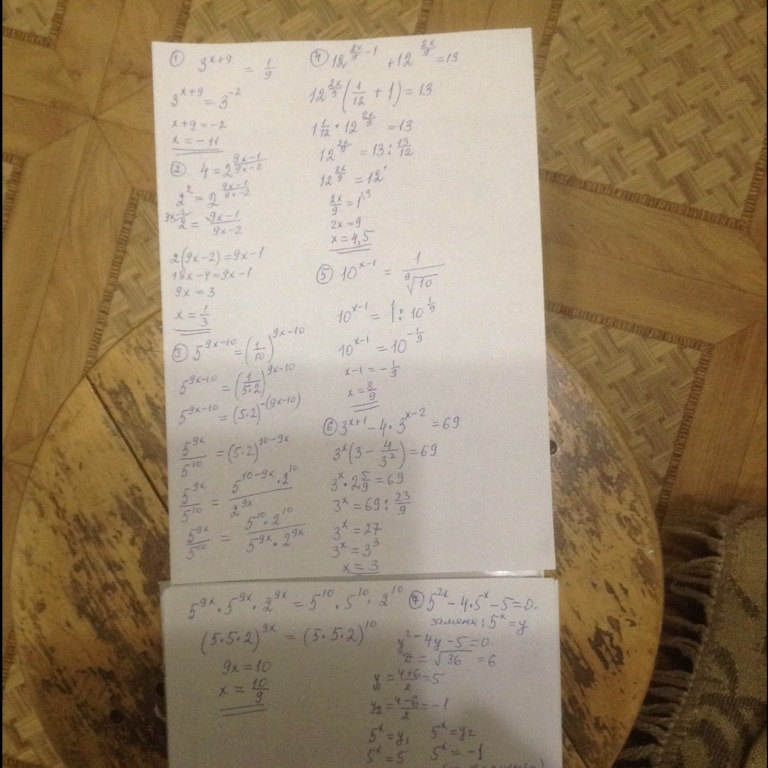 ① 3^(x+9) = 1/9
3^(x+9) = 3^(-2)
x+9 = -2
x = -11
② 4 = 2^((9x-1)/(9x-2))
2^2 = 2^((9x-1)/(9x-2))
2 = (9x-1)/(9x-2)
2(9x-2) = 9x-1
18x-4 = 9x-1
9x = 3
x = 1/3
③ 5^(9x-10) = (1/10)^(9x-10)
5^(9x-10) = (1/(5·2))^(9x-10)
5^(9x-10) = (5·2)^(-(9x-10))
5^(9x)/5^10 = (5·2)^(10-9x)
5^(9x)/5^10 = (5^(10-9x)·2^10)/2^(9x)
5^(9x)/5^10 = (5^10·2^10)/(5^(9x)·2^(9x))
5^(9x)·5^(9x)·2^(9x) = 5^10·5^10·2^10
(5·5·2)^(9x) = (5·5·2)^10
9x = 10
x = 10/9
④ 12^(2x/9-1) + 12^(2x/9) = 13
12^(2x/9)(1/12 + 1) = 13
1 1/12 · 12^(2x/9) = 13
12^(2x/9) = 13 : 13/12
12^(2x/9) = 12^1
2x/9 = 1
2x = 9
x = 4,5
⑤ 10^(x-1) = 1/⁹√10
10^(x-1) = 1 : 10^(1/9)
10^(x-1) = 10^(-1/9)
x-1 = -1/9
x = 8/9
⑥ 3^(x+1) - 4·3^(x-2) = 69
3^x(3 - 4/3^2) = 69
3^x · 2 5/9 = 69
3^x = 69 : 23/9
3^x = 27
3^x = 3^3
x = 3
⑦ 5^(2x) - 4·5^x - 5 = 0.
замена: 5^x = y
y^2 - 4y - 5 = 0.
D = √36 = 6
y₁ = (4+6)/2 = 5
y₂ = (4-6)/2 = -1
5^x = y₁ 5^x = y₂
5^x = 5 5^x = -1